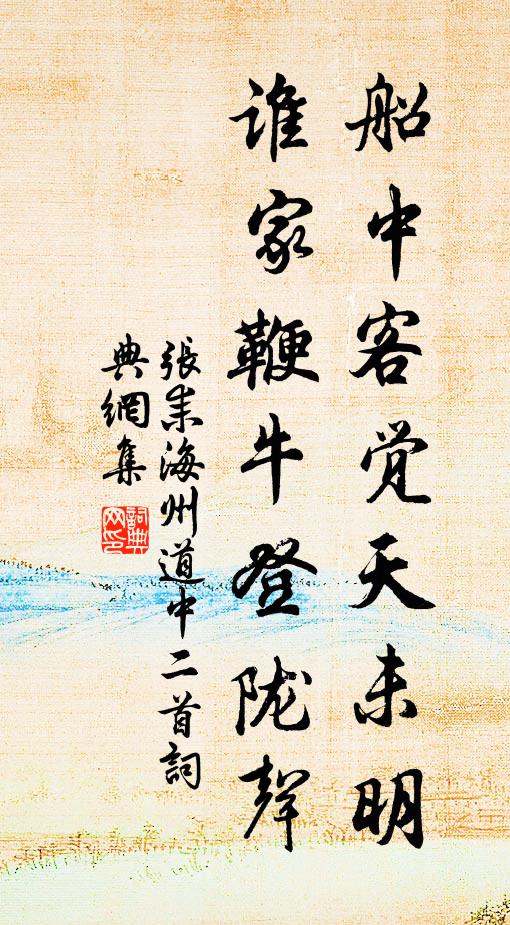 船中客觉天未明
谁家鞭牛登陇声
張耒海州道中二首詞
典網集
詞典
网印